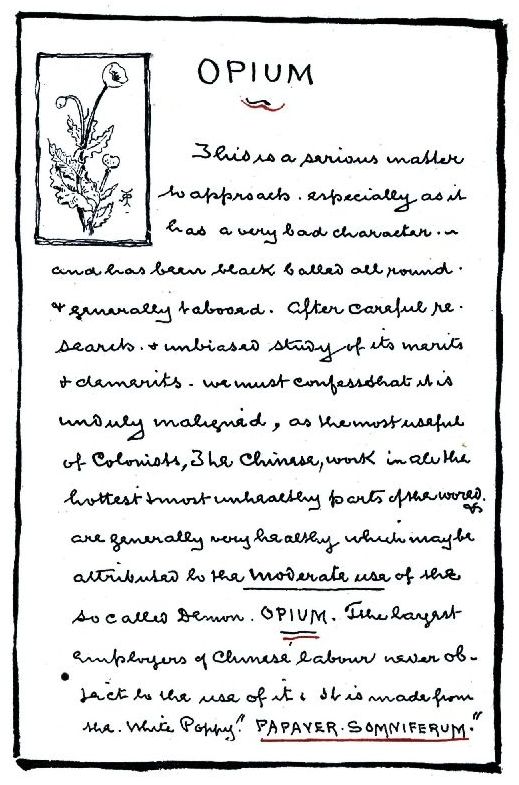 OPIUM
This is a serious matter
to approach. especially as it
has a very bad character. ~
and has been black balled all round.
& generally tabooed. After careful re.
search. & unbiased study of its merits
& demerits - we must confess that it is
unduly maligned, as the most useful
of Colonists, The Chinese, work in all the
hottest & most unhealthy parts of the world.
&
are generally very healthy which may be
attributed to the moderate use of the
so called Demon. OPIUM. The largest
employers of Chinese labour never ob-
ject to the use of it: It is made from
the. White Poppy." PAPAVER. SOMNIFERUM."